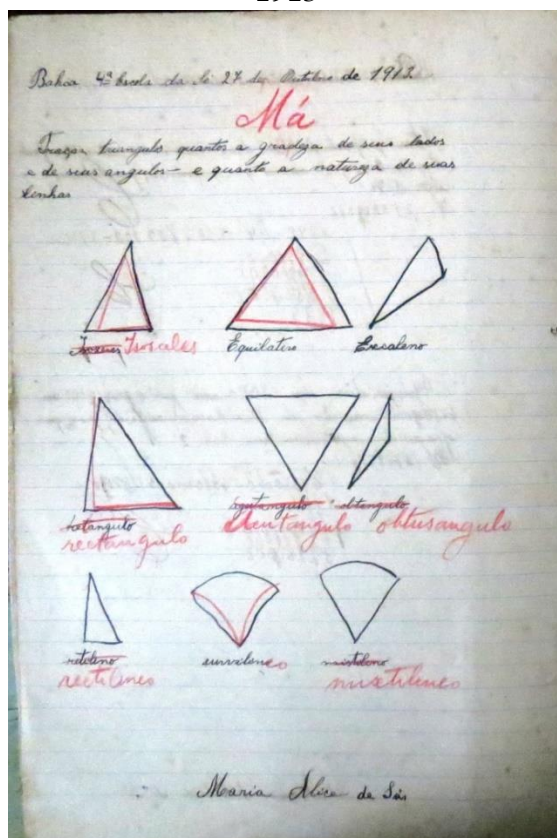 Bahia 4ª Escola da Sé 27 de Outubro de 1913
Má
Traçar triangulo quantos a gradeza de seus lados
e de seus angulos – e quanto a natureza de suas
linhas
Isosales Equilatero Escaleno
retangulo agutangulo obtangulo
rectangulo acutangulo obtusangulo
retileno curvileneo mistileno
rectilineo mixtilineo
Maria Alice de Sá